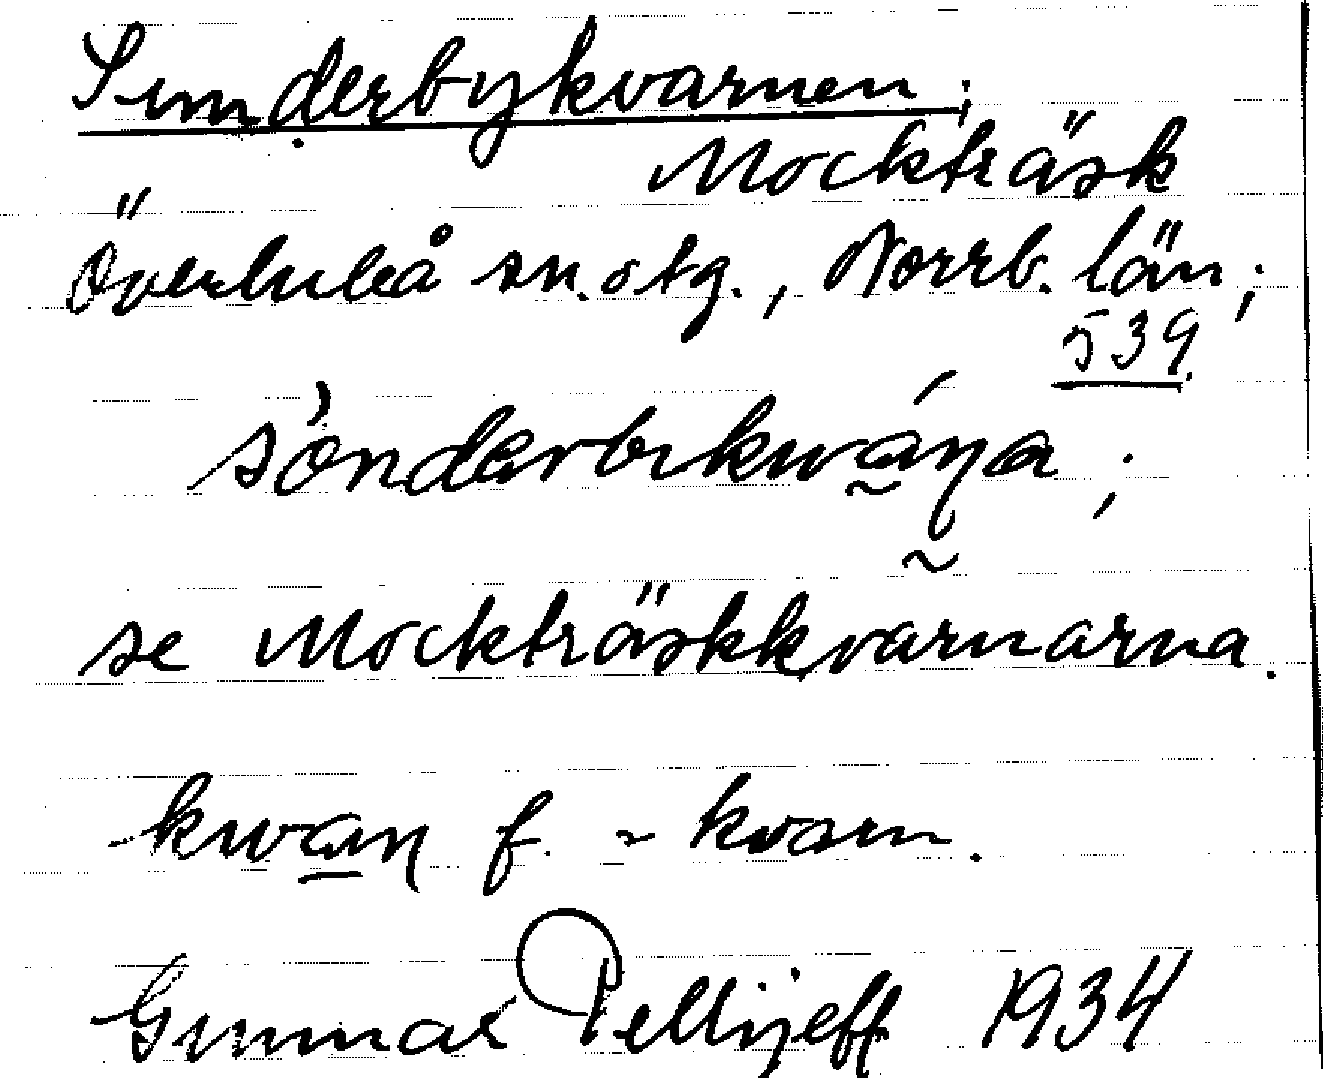 Sunderbykvarnen;
Mockträsk
Överluleå sn. o. tg., Norrb. län;
539
sönderbikwáŋa;
se Mockträskkvarnarna.
kwaŋ f. ~ kvarn.
Gunnar Pellijeff 1934